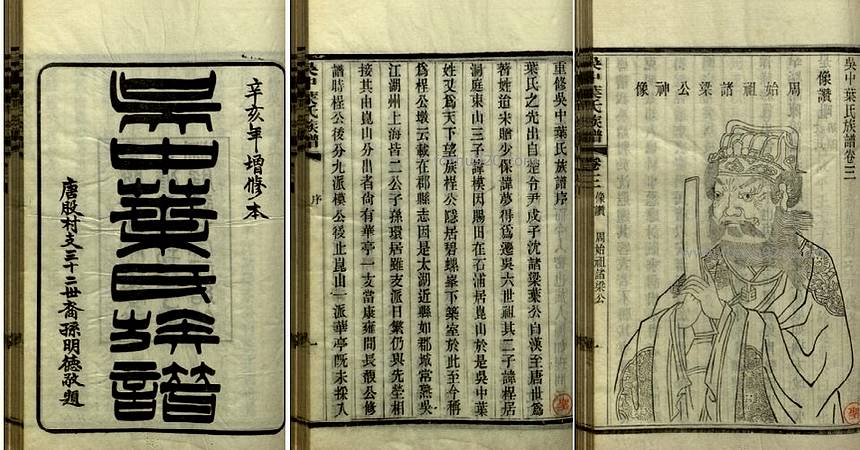 辛亥年增修本
吳中葉氏族譜
唐股村支三十二世裔孫明德敬題
重修吳中葉氏族譜序
葉氏之先出自楚令尹戌子沈諸梁葉公自漢至唐世爲
著姓迨宋贈少保諱夢得爲遷吳六世祖其二子諱桯居
洞庭東山三子諱模因賜田在石浦居崑山於是吳中葉
姓又爲天下望族桯公隱居碧螺峯下築室於此至今稱
爲桯公墩云載在郡縣志因是太湖近縣如郡城常熟吳
江湖州上海皆二公子孫環居雖支派日繁仍與先塋相
接其由崑山分出者尚有華亭一支當康雍間長馥公修
譜時桯公後分九派模公後止崑山一派華亭既未採入
吳中葉氏族譜 序 一
吳中葉氏族譜卷三
像讚
周始祖諸梁公神像
吳中葉氏族譜 卷三 像讚 周始祖諸梁公 一